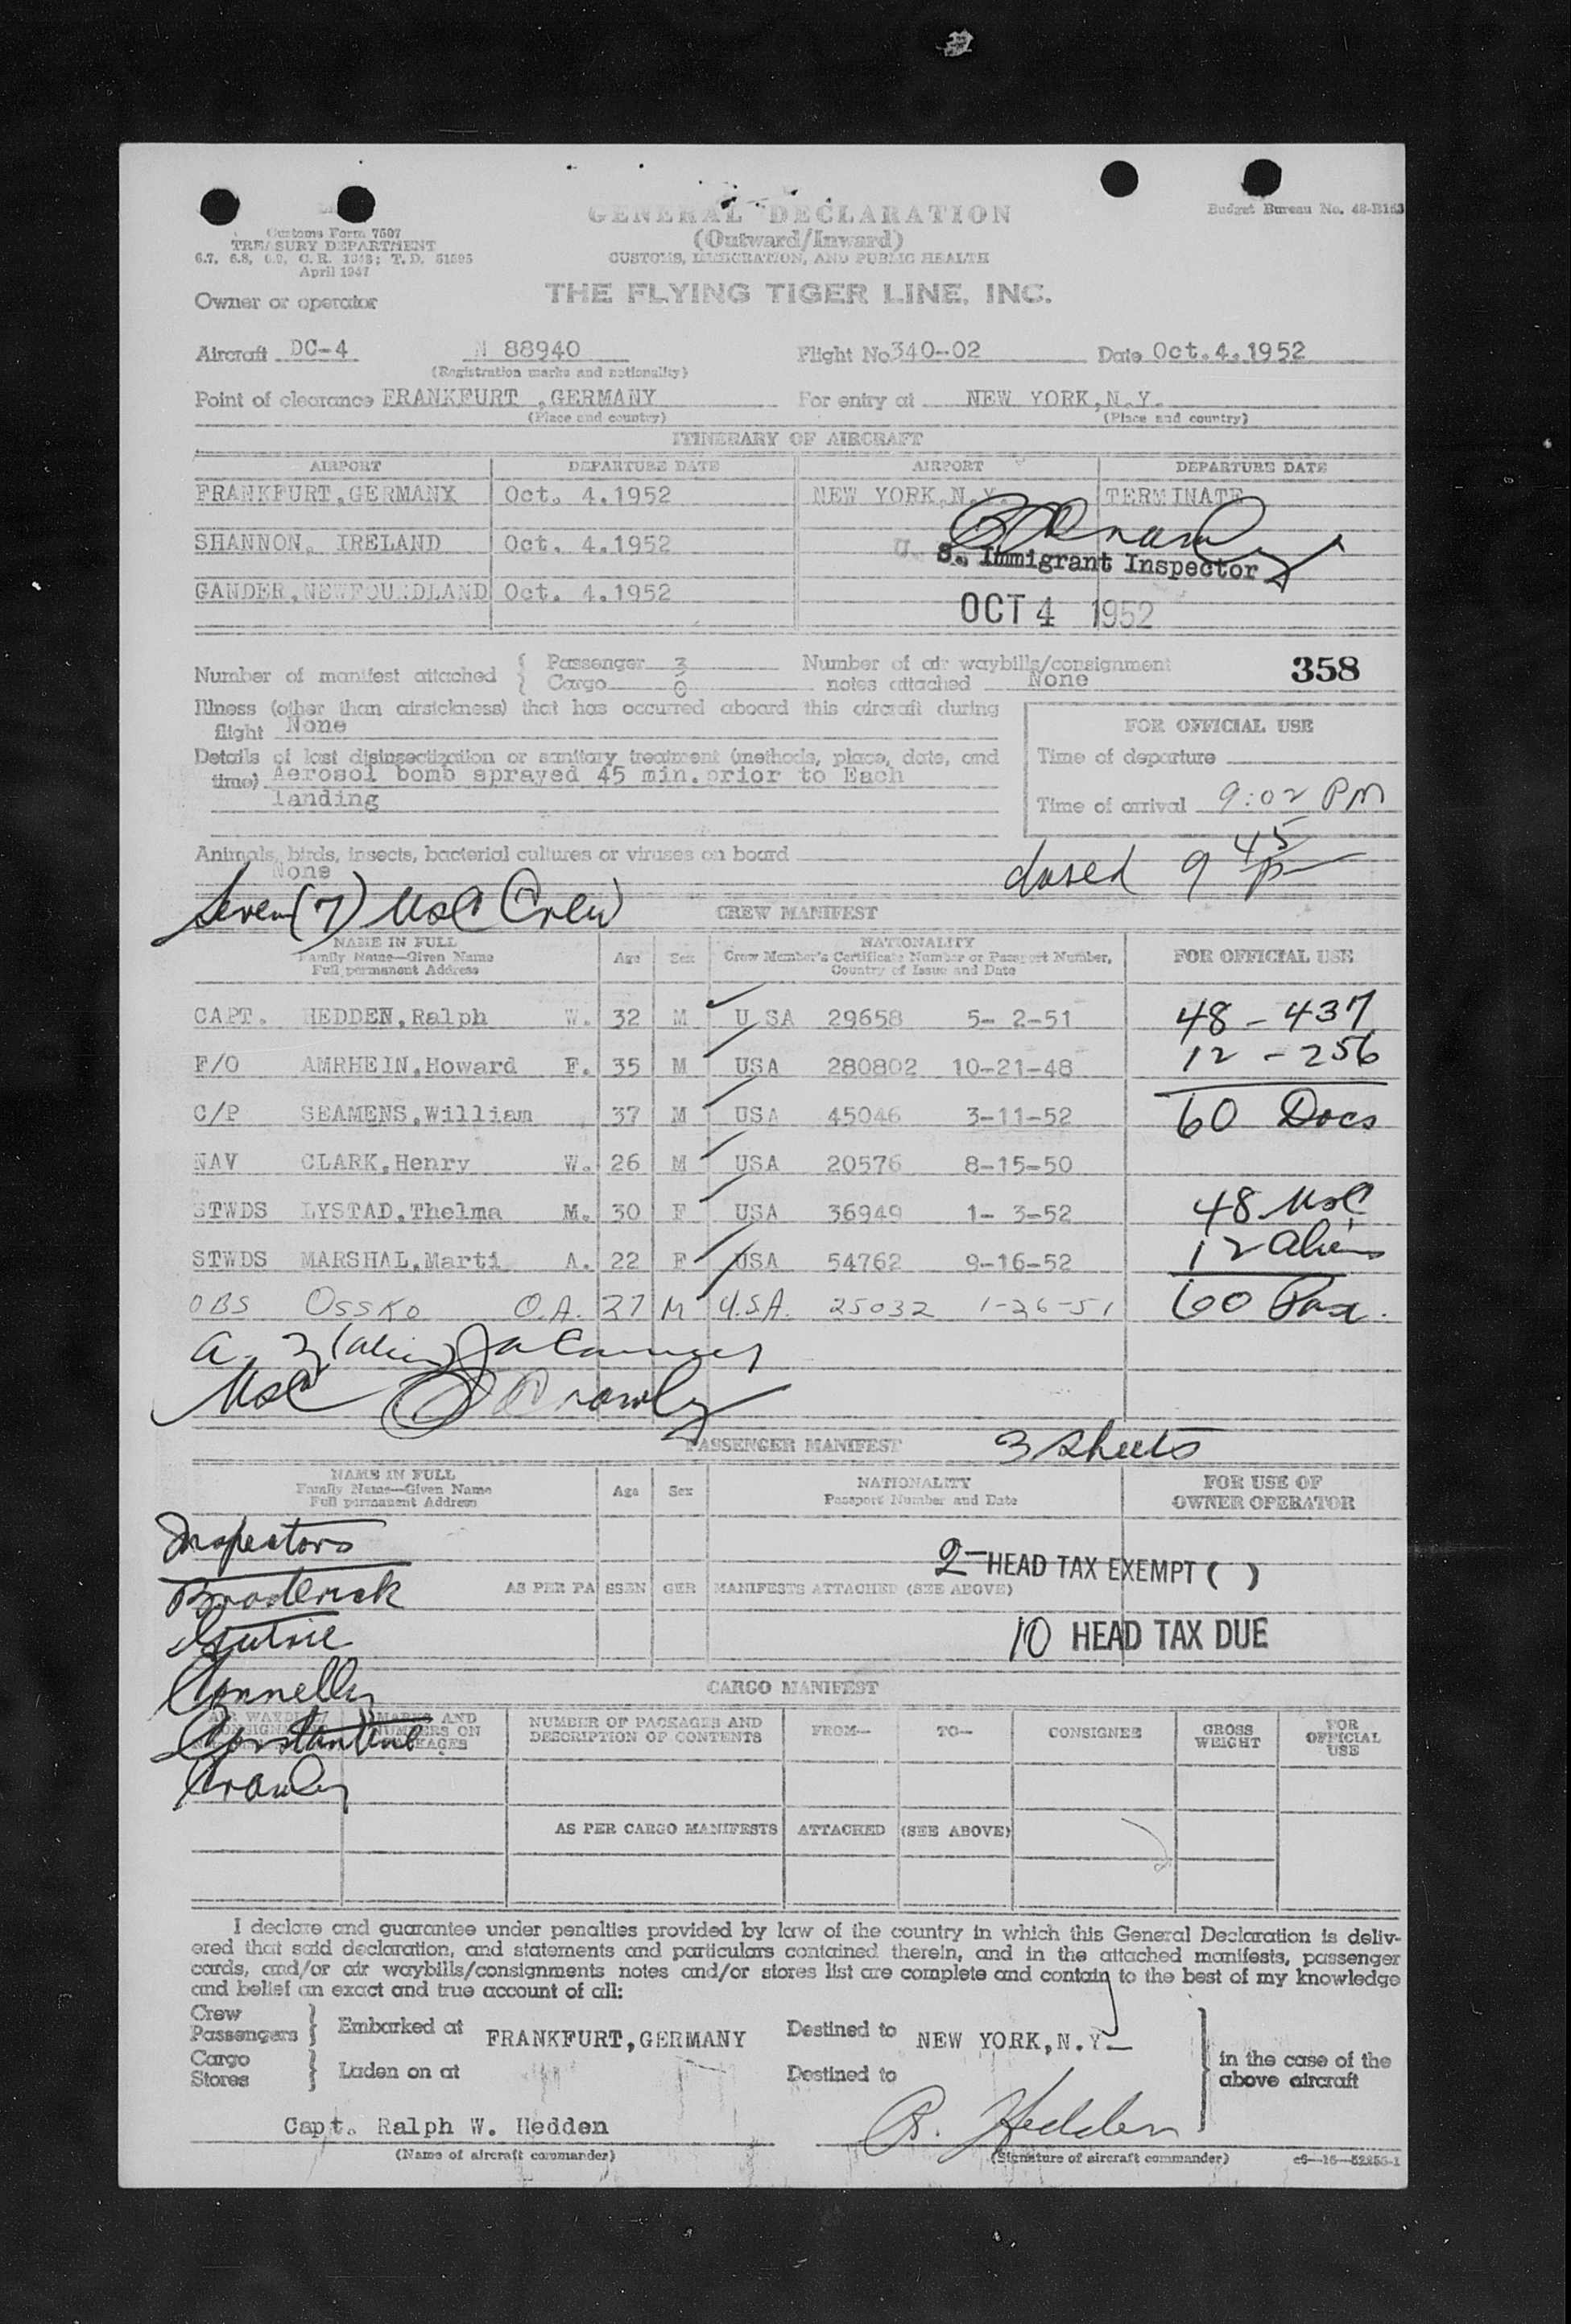 Customs Form 7507
TREASURY DEPARTMENT
6.7, 6.8, 6.9, C. R. 1943; T. D. 51595
April 1947
GENERAL DECLARATION
(Outward/Inward)
CUSTOMS, IMMIGRATION, AND PUBLIC HEALTH
Budget Bureau No. 48-R163
Owner or operator
THE FLYING TIGER LINE, INC.
Aircraft DC-4 N 88940 Flight No 340-02 Date Oct.4.1952
(Registration marks and nationality)
Point of clearance FRANKFURT ,GERMANY For entry at NEW YORK,N.Y.
(Place and country) (Place and country)
ITINERARY OF AIRCRAFT
AIRPORT DEPARTURE DATE AIRPORT DEPARTURE DATE
FRANKFURT,GERMANY Oct. 4.1952 NEW YORK,N.Y. TERMINATE
SHANNON, IRELAND Oct. 4.1952
U. S. Immigrant Inspector
GANDER,NEWFOUNDLAND Oct. 4.1952
OCT 4 1952
Number of manifest attached { Passenger 3 Number of air waybills/consignment
Cargo 0 notes attached None
358
Illness (other than airsickness) that has occurred aboard this aircraft during
flight None
FOR OFFICIAL USE
Details of last disinsectization or sanitary treatment (methods, place, date, and
time) Aerosol bomb sprayed 45 min.prior to Each
landing
Time of departure
Time of arrival 9:02 PM
Animals, birds, insects, bacterial cultures or viruses on board
None
closed 9 45 p
Seven (7) USC Crew
CREW MANIFEST
NAME IN FULL
Family Name—Given Name
Full permanent Address
Age Sex
NATIONALITY
Crew Member's Certificate Number or Passport Number,
Country of Issue and Date
FOR OFFICIAL USE
CAPT. HEDDEN,Ralph W. 32 M U SA 29658 5- 2-51 48 - 437
F/O AMRHEIN,Howard F. 35 M USA 280802 10-21-48 12 - 256
C/P SEAMENS,William 37 M USA 45046 3-11-52 60 Docs
NAV CLARK,Henry W. 26 M USA 20576 8-15-50
STWDS LYSTAD,Thelma M. 30 F USA 36949 1- 3-52 48 USC
STWDS MARSHAL,Marti A. 22 F USA 54762 9-16-52 12 Aliens
OBS OSSKO O.A. 27 M U.S.A. 25032 1-26-51 60 Pax.
USC Crowley
PASSENGER MANIFEST 3 sheets
NAME IN FULL
Family Name—Given Name
Full permanent Address
Age Sex
NATIONALITY
Passport Number and Date
FOR USE OF
OWNER OPERATOR
Inspectors
2 - HEAD TAX EXEMPT ( )
Broderick
AS PER PASSENGER MANIFESTS ATTACHED (SEE ABOVE)
Guthrie
10 HEAD TAX DUE
Connelly
CARGO MANIFEST
Constantine
MARKS AND
NUMBERS ON
PACKAGES
NUMBER OF PACKAGES AND
DESCRIPTION OF CONTENTS
FROM— TO— CONSIGNEE
GROSS
WEIGHT
FOR
OFFICIAL
USE
Crowley
AS PER CARGO MANIFESTS ATTACHED (SEE ABOVE)
I declare and guarantee under penalties provided by law of the country in which this General Declaration is deliv-
ered that said declaration, and statements and particulars contained therein, and in the attached manifests, passenger
cards, and/or air waybills/consignments notes and/or stores list are complete and contain to the best of my knowledge
and belief an exact and true account of all:
Crew
Passengers } Embarked at FRANKFURT,GERMANY Destined to NEW YORK,N.Y.
Cargo
Stores } Laden on at Destined to
in the case of the
above aircraft
Capt. Ralph W. Hedden R. Hedden
(Name of aircraft commander) (Signature of aircraft commander)
c6—16—52255-1